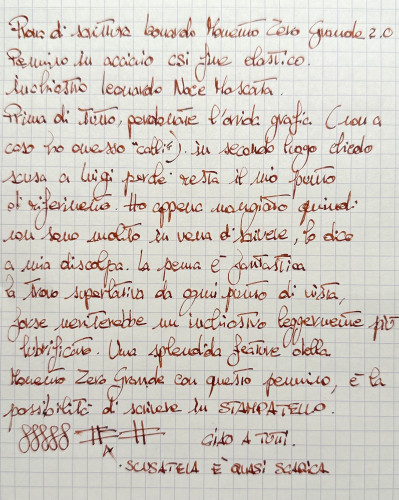 Prova di scrittura Leonardo Momento Zero Grande 2.0
Pennino in acciaio csi fine elastico.
Inchiostro Leonardo Noce Moscata.
Prima di tutto, perdonate l'orrida grafia (non a
caso ho omesso "calli-"). in secondo luogo chiedo
scusa a Luigi perché resta il mio punto
di riferimento. Ho appena mangiato quindi
non sono molto in vena di scrivere, lo dico
a mia discolpa. La penna è fantastica
la trovo superlativa da ogni punto di vista,
forse meriterebbe un inchiostro leggermente più
lubrificato. Una splendida feature della
Momento Zero Grande con questo pennino, è la
possibilità di scrivere in STAMPATELLO.
CIAO A TUTTI.
· SCUSATELA È QUASI SCARICA